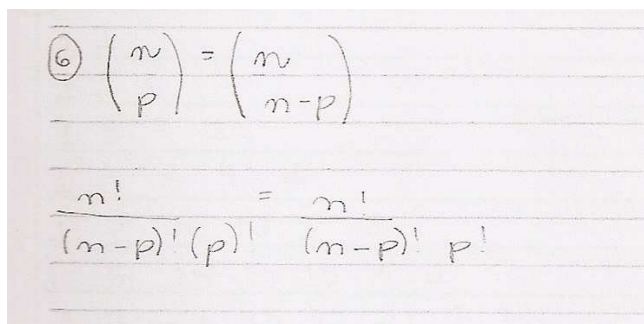 ⑥ (n p) = (n n-p)
n! / (n-p)! (p)! = n! / (n-p)! p!